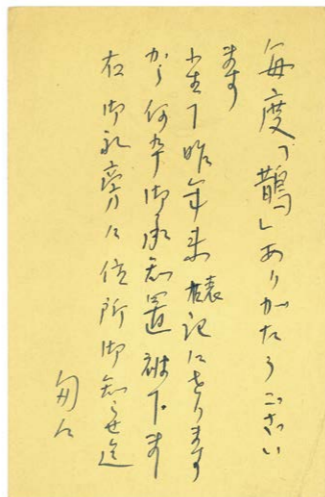 毎度「鵲」ありがたうござい
ます
小生昨年来標記にをります
から何卒御承知置被下
右御礼旁々住所御知らせ迄
匆々